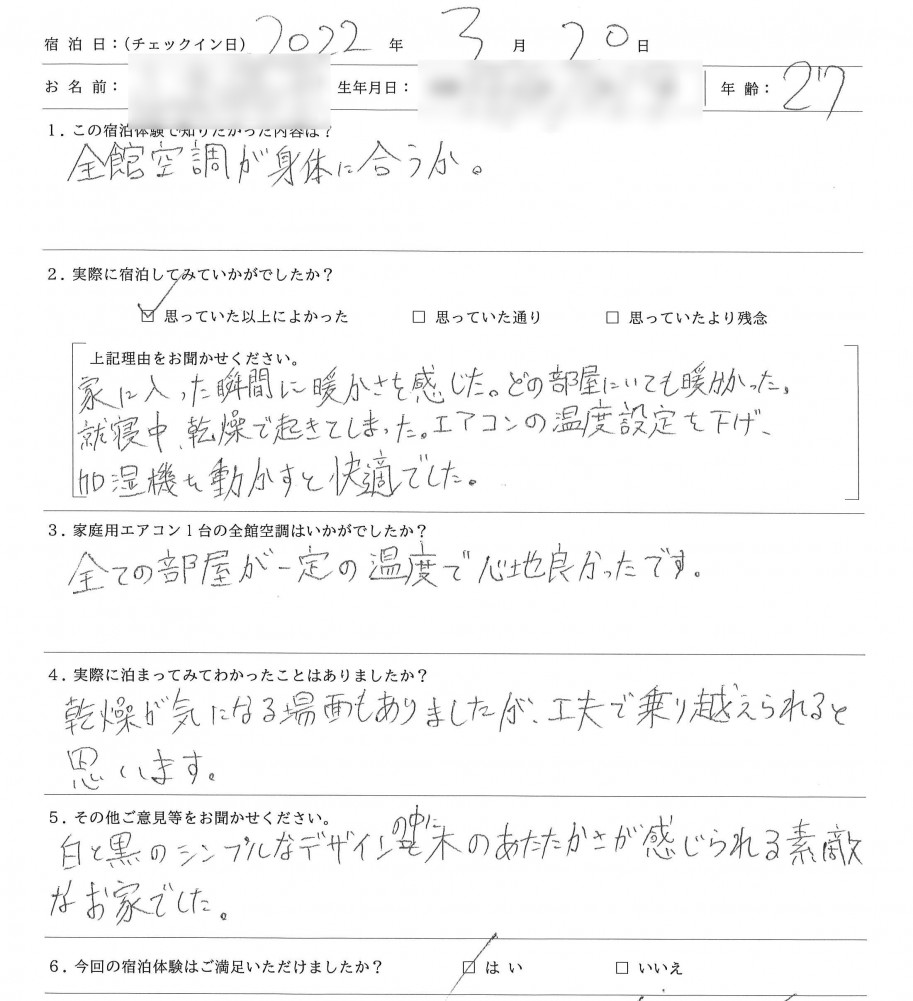 宿 泊 日：(チェックイン日) 2022 年 3 月 20 日
お 名 前： 生年月日： 年 齢： 27
1．この宿泊体験で知りたかった内容は？
全館空調が身体に合うか。
2．実際に宿泊してみていかがでしたか？
☑ 思っていた以上によかった □ 思っていた通り □ 思っていたより残念
上記理由をお聞かせください。
家に入った瞬間に暖かさを感じた。どの部屋にいても暖かかった。
就寝中、乾燥で起きてしまった。エアコンの温度設定を下げ、
加湿機を動かすと快適でした。
3．家庭用エアコン1台の全館空調はいかがでしたか？
全ての部屋が一定の温度で心地良かったです。
4．実際に泊まってみてわかったことはありましたか？
乾燥が気になる場面もありましたが、工夫で乗り越えられると
思います。
5．その他ご意見等をお聞かせください。
白と黒のシンプルなデザインの中に木のあたたかさが感じられる素敵
なお家でした。
6．今回の宿泊体験はご満足いただけましたか？ ☑ はい □ いいえ